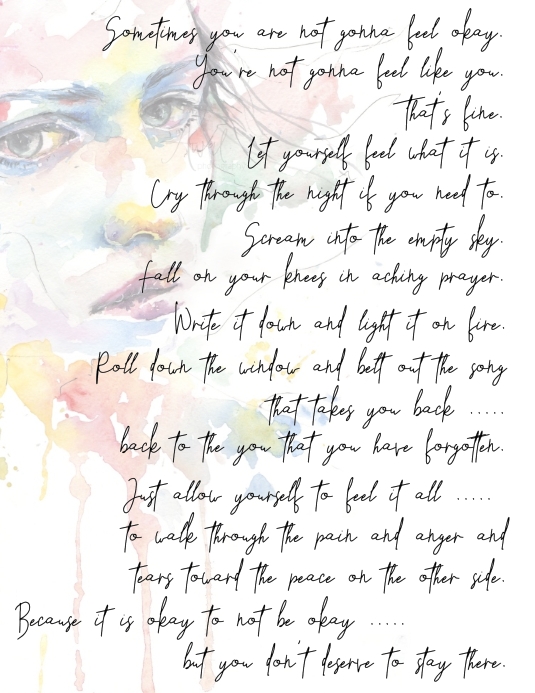 Sometimes you are not gonna feel okay.
You're not gonna feel like you.
That's fine.
Let yourself feel what it is.
Cry through the night if you need to.
Scream into the empty sky.
Fall on your knees in aching prayer.
Write it down and light it on fire.
Roll down the window and belt out the song
that takes you back .....
back to the you that you have forgotten.
Just allow yourself to feel it all .....
to walk through the pain and anger and
tears toward the peace on the other side.
Because it is okay to not be okay .....
but you don't deserve to stay there.